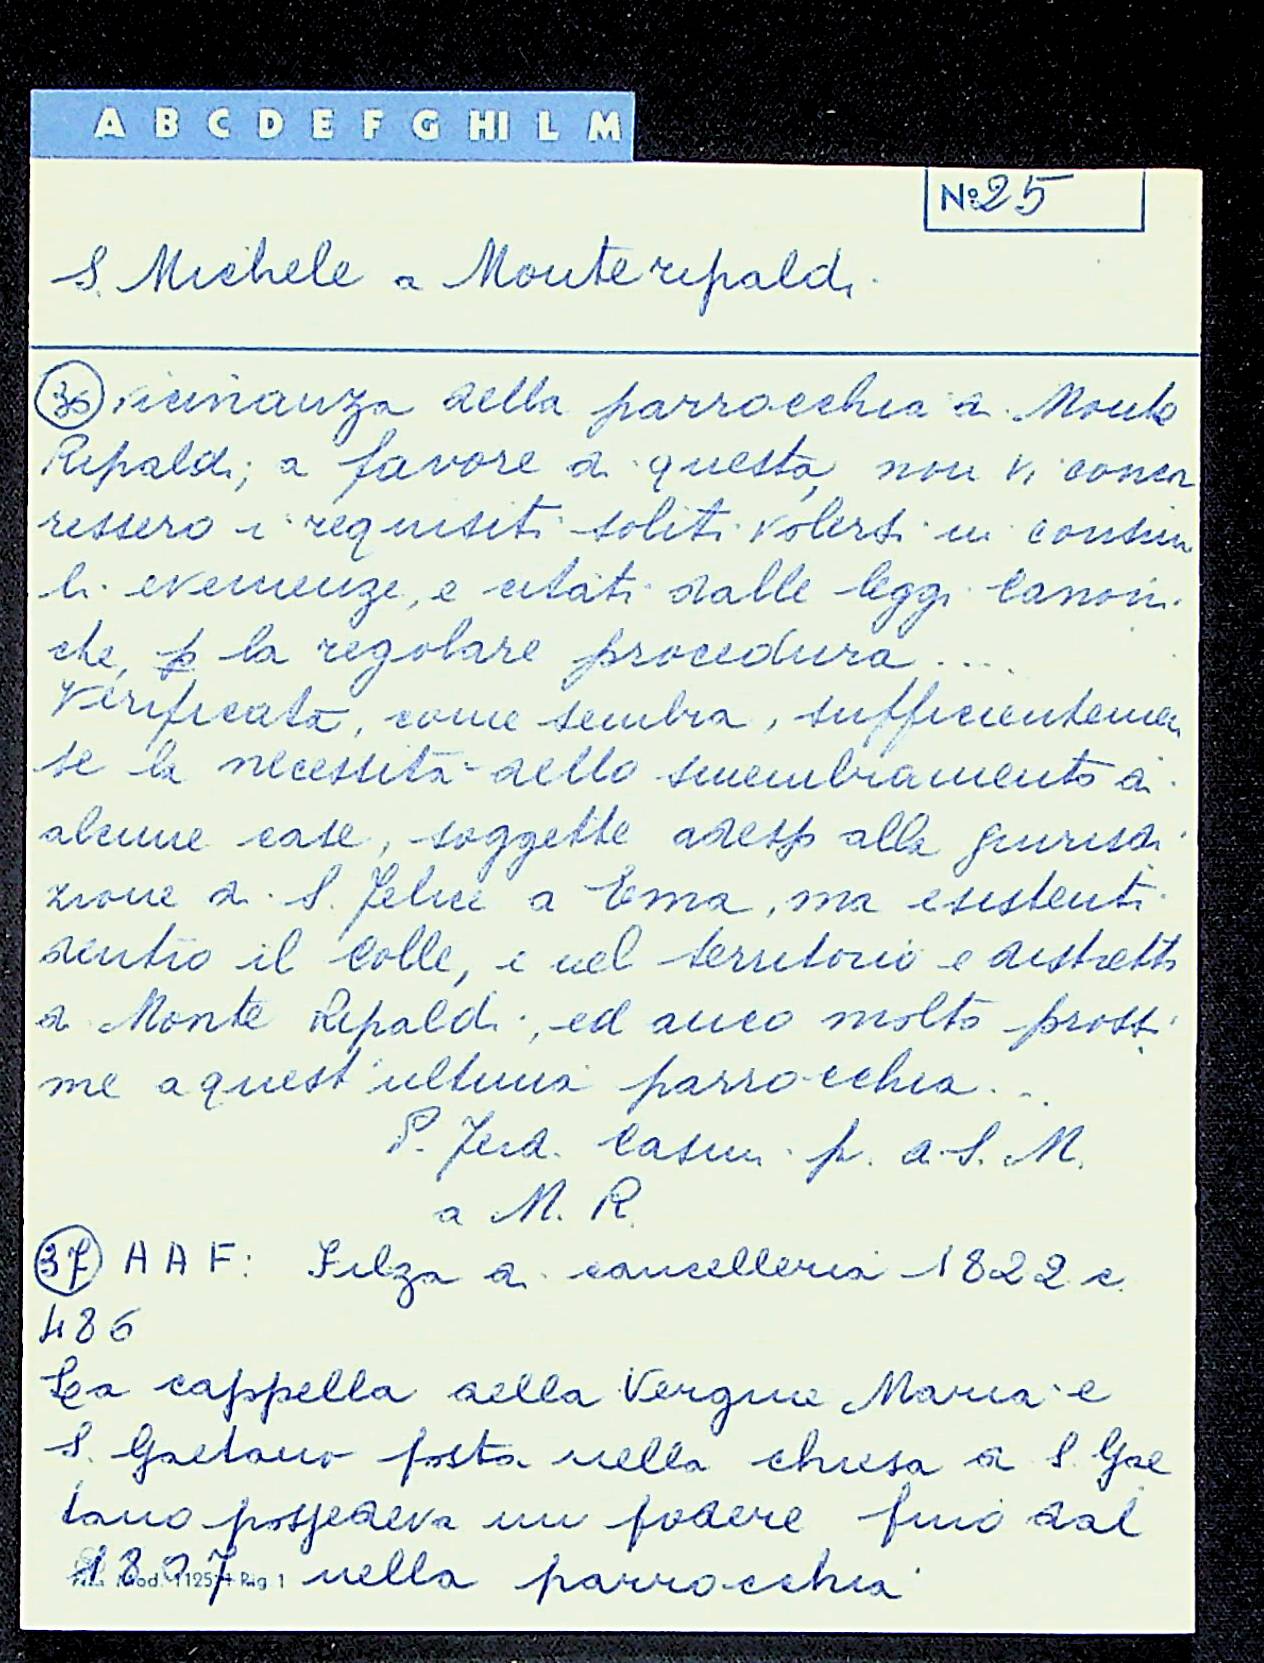 A B C D E F G HI L M
No 25
S. Michele a Monteripaldi.
36 vicinanza della parrocchia di Monte
Ripaldi; a favore di questa, non vi concor
ressero i requisiti soliti volersi in consimi
li evenienze, e citati dalle leggi canoni
che, p la regolare procedura ....
Verificata, come sembra, sufficientemen
te la necessità dello smembramento di
alcune case, soggette adesso alla giurisdi
zione di S. Felice a Ema, ma esistenti
dentro il Colle, e nel territorio e distretto
di Monte Ripaldi, ed anco molto prossi
me a quest'ultima parrocchia...
P. Ferd. Casini p. di S. M.
a M. R.
37 A A F: Filza di cancelleria 1822 c.
486
La cappella della Vergine Maria e
S. Gaetano posta nella chiesa di S. Gae
tano possedeva un podere fino dal
1807 nella parrocchia
Mod. 11257 Rig. 1